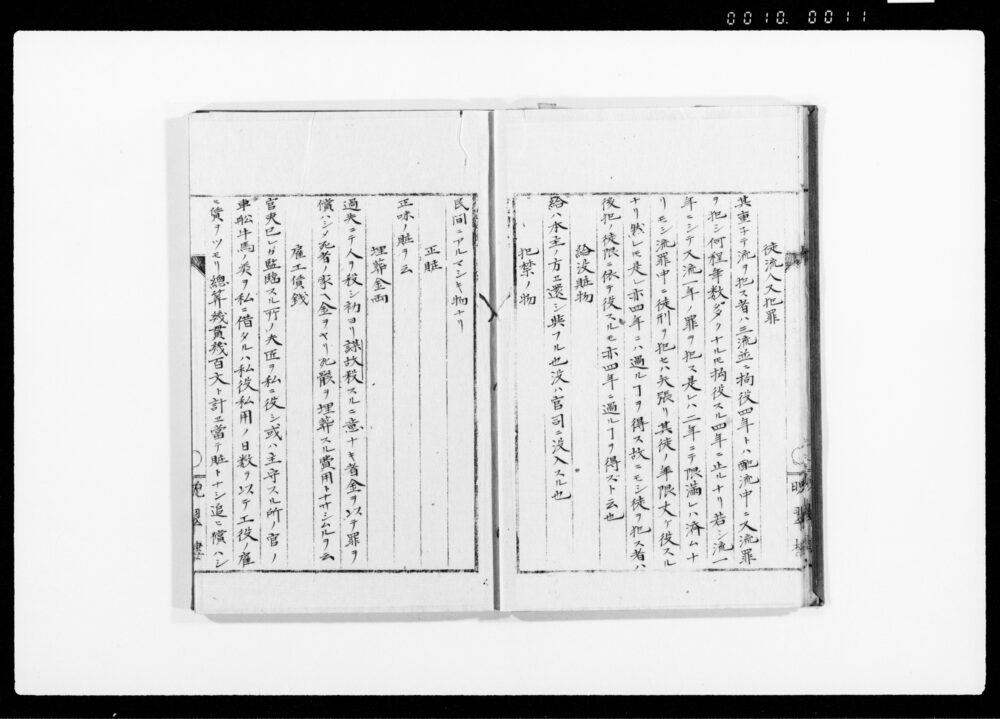 0010. 0011
徒流人又犯罪
其重子テ流ヲ犯ス者ハ三流並ニ拘役四年トハ配流中ニ又流罪
ヲ犯シ何程年数多クナルモ拘役スル四年ニ止ルナリ若シ流一
年ニシテ又流一年ノ罪ヲ犯ス是レハ二年ニテ限満レハ済ムナ
リモシ流罪中ニ徒刑ヲ犯セハ矢張リ其徒ノ年限丈ケ役スル
ナリ然レモ是レ亦四年ニハ過ルヿヲ得ス故ニモシ徒ヲ犯ス者ハ
後犯ノ徒限ニ依テ役スルモ亦四年ニ過ルヿヲ得ズト云也
給没贓物
給ハ本主ノ方エ還シ與フル也没ハ官司ニ没入スル也
犯禁ノ物
民間ニアルマシキ物ナリ
正贓
正味ノ贓ヲ云
埋葬金両
過失ニテ人ヲ殺シ初ヨリ謀故殺スルニ意ナキ者金ヲ以テ罪ヲ
償ハシメ死者ノ家ヘ金ヲヤリ死骸ヲ埋葬スル費用トナサシムルヲ云
雇工賃銭
官吏已レガ監臨スル所ノ夫匠ヲ私ニ役シ或ハ主守スル所ノ官ノ
車船牛馬ノ類ヲ私ニ借タルハ私役私用ノ日数ヲ以テ工役ノ雇
ニ賃ヲツモリ總算幾貫幾百文ト計エ當テ贓トナシ追ニ償ハシ
晩翠